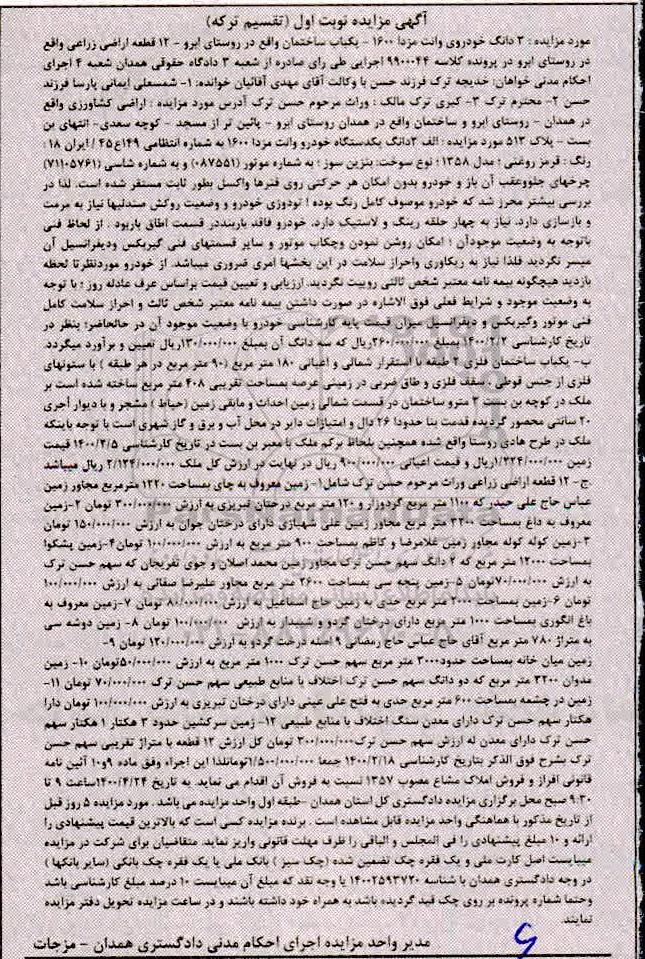 آگهی مزایده نوبت اول (تقسیم ترکه)
مورد مزایده : ۳ دانگ خودروی وانت مزدا ۱۶۰۰ - یکباب ساختمان واقع در روستای ابرو - ۱۲ قطعه اراضی زراعی واقع
در روستای ابرو در پرونده کلاسه ۹۹۰۰۴۴ اجرایی طی رای صادره از شعبه ۳ دادگاه حقوقی همدان شعبه ۴ اجرای
احکام مدنی خواهان: خدیجه ترک فرزند حسن با وکالت آقای مهدی آقائیان خوانده: ۱- شمسعلی ایمانی پارسا فرزند
حسن ۲- محترم ترک ۳- کبری ترک مالک : وراث مرحوم حسن ترک آدرس مورد مزایده : اراضی کشاورزی واقع
در همدان - روستای ابرو و ساختمان واقع در همدان روستای ابرو - پائین تر از مسجد - کوچه سعدی- انتهای بن
بست - پلاک ۵۱۳ مورد مزایده : الف ۳دانگ یکدستگاه خودرو وانت مزدا ۱۶۰۰ به شماره انتظامی ۱۴۹ع۴۵ / ایران ۱۸ :
رنگ : قرمز روغنی ؛ مدل ۱۳۵۸ ؛ نوع سوخت: بنزین سوز ؛ به شماره موتور (۰۸۷۵۵۱) و به شماره شاسی (۷۱۱۰۵۷۶۱)
چرخهای جلووعقب آن باز و خودرو بدون امکان هر حرکتی روی فنرها واکسل بطور ثابت مستقر شده است. لذا در
بررسی بیشتر محرز شد که خودرو موصوف کامل رنگ بوده ؛ تودوزی خودرو و وضعیت روکش صندلیها نیاز به مرمت
و بازسازی دارد. نیاز به چهار حلقه رینگ و لاستیک دارد. خودرو فاقد باربنددر قسمت اطاق باربود . از لحاظ فنی
باتوجه به وضعیت موجودآن ؛ امکان روشن نمودن وچکاب موتور و سایر قسمتهای فنی گیربکس ودیفرانسیل آن
میسر نگردید فلذا نیاز به ریکاوری واحراز سلامت در این بخشها امری ضروری میباشد. از خودرو موردنظرتا لحظه
بازدید هیچگونه بیمه نامه معتبر شخص ثالثی رویت نگردید. ارزیابی و تعیین قیمت براساس عرف عادله روز ؛ با توجه
به وضعیت موجود و شرایط فعلی فوق الاشاره در صورت داشتن بیمه نامه معتبر شخص ثالث و احراز سلامت کامل
فنی موتور وگیربکس و دیفرانسیل میزان قیمت پایه کارشناسی خودرو با وضعیت موجود آن در حالحاضر؛ بنظر در
تاریخ کارشناسی ۱۴۰۰/۲/۲ بمبلغ ۲۶۰/۰۰۰/۰۰۰ریال که سه دانگ آن بمبلغ ۱۳۰/۰۰۰/۰۰۰ریال تعیین و برآورد میگردد.
ب- یکباب ساختمان فلزی ۲ طبقه با استقرار شمالی و اعیانی ۱۸۰ متر مربع (۹۰ متر مربع در هر طبقه ) با ستونهای
فلزی از جنس قوطی ، سقف فلزی و طاق ضربی در زمینی عرصه بمساحت تقریبی ۴۰۸ متر مربع ساخته شده است بر
ملک در کوچه بن بست ۳ مترو ساختمان در قسمت شمالی زمین احداث و مابقی زمین (حیاط ) مشجر و با دیوار آجری
۲۰ سانتی محصور گردیده قدمت بنا حدودا ۲۶ دال و امتیازات دایر در محل آب و برق و گاز شهری است با توجه باینکه
ملک در طرح هادی روستا واقع شده همچنین بلحاظ برکم ملک با معبر بن بست در تاریخ کارشناسی ۱۴۰۰/۲/۵ قیمت
زمین ۱/۲۲۴/۰۰۰/۰۰۰ریال و قیمت اعیانی ۹۰۰/۰۰۰/۰۰۰ ریال در نهایت در ارزش کل ملک ۲/۱۲۴/۰۰۰/۰۰۰ ریال میباشد
.ج- ۱۲ قطعه اراضی زراعی وراث مرحوم حسن ترک شامل۱- زمین معروف به چای بمساحت ۱۲۲۰ مترمربع مجاور زمین
عباس حاج علی حیدر که ۱۱۰۰ متر مربع گردوزار و ۱۲۰ متر مربع درختان تبریزی به ارزش ۳۰۰/۰۰۰/۰۰۰ تومان ۲-زمین
معروف به داغ بمساحت ۳۲۰۰ متر مربع مجاور زمین علی شهبازی دارای درختان جوان به ارزش ۱۵۰/۰۰۰/۰۰۰ تومان
۳-زمین کوله کوله مجاور زمین غلامرضا و کاظم بمساحت ۹۰۰ متر مربع به ارزش ۱۰۰/۰۰۰/۰۰۰ تومان۴-زمین پشکوا
بمساحت ۱۲۰۰۰ متر مربع که ۲ دانگ سهم حسن ترک مجاورزمین محمد اصلان و جوی تفریجان که سهم حسن ترک
به ارزش ۷۰/۰۰۰/۰۰۰تومان ۵-زمین پنجه سی بمساحت ۲۶۰۰ متر مربع مجاور علیرضا صفائی به ارزش ۱۰۰/۰۰۰/۰۰۰
تومان ۶-زمین بمساحت ۲۰۰۰ متر مربع حدی به زمین حاج اسماعیل به ارزش ۸۰/۰۰۰/۰۰۰ تومان ۷-زمین معروف به
باغ انگوری بمساحت ۱۰۰۰ متر مربع دارای درختان گردو و شبیدار به ارزش ۱۰۰/۰۰۰/۰۰۰ تومان ۸- زمین دوشه سی
به متراژ ۷۸۰ متر مربع آقای حاج عباس حاج رمضانی ۹ اصله درخت گردو به ارزش ۱۳۰/۰۰۰/۰۰۰ تومان ۹-
زمین میان خانه بمساحت حدود۳۰۰۰ متر مربع سهم حسن ترک ۱۰۰۰ متر مربع به ارزش ۵۰/۰۰۰/۰۰۰تومان ۱۰- زمین
مدوان ۳۲۰۰ متر مربع که دو دانگ سهم حسن ترک اختلاف با منابع طبیعی سهم حسن ترک ۷۰/۰۰۰/۰۰۰ تومان ۱۱-
زمین در چشمه بمساحت ۶۰۰ متر مربع حدی به فتح علی عینی دارای درختان تبریزی به ارزش ۱۰۰/۰۰۰/۰۰۰ تومان دارا
هکتار سهم حسن ترک دارای معدن سنگ اختلاف با منابع طبیعی ۱۲- زمین سرکشین حدود ۳ هکتار ۱ هکتار سهم
حسن ترک دارای معدن له ارزش سهم حسن ترک۳۰۰/۰۰۰/۰۰۰ تومان کل ارزش ۱۲ قطعه با متراژ تقریبی سهم حسن
ترک بشرح فوق الذکر بتاریخ کارشناسی ۱۴۰۰/۲/۱۸ جمعا ۱/۵۰۰/۰۰۰/۰۰۰تومانلذا این اجراء وفق ماده ۹و۱۰ آئین نامه
قانونی افراز و فروش املاک مشاع مصوب ۱۳۵۷ نسبت به فروش آن اقدام می نماید. به تاریخ ۱۴۰۰/۴/۲۴ساعت ۹ تا
۹:۳۰ صبح محل برگزاری مزایده دادگستری کل استان همدان -طبقه اول واحد مزایده می باشد . مورد مزایده ۵ روز قبل
از تاریخ مذکور با هماهنگی واحد مزایده قابل مشاهده است . برنده مزایده کسی است که بالاترین قیمت پیشنهادی را
ارائه و ۱۰ مبلغ پیشنهادی را فی المجلس و الباقی را ظرف مهلت قانونی واریز نماید. متقاضیان برای شرکت در مزایده
میبایست اصل کارت ملی و یک فقره چک تضمین شده (چک سبز ) بانک ملی یا یک فقره چک بانکی (سایر بانکها )
در وجه دادگستری همدان با شناسه ۱۴۰۰۲۵۹۳۷۲۰ یا وجه نقد که مبلغ آن میبایست ۱۰ درصد مبلغ کارشناسی باشد
وحتما شماره پرونده بر روی چک قید گردیده باشد به همراه خود داشته باشند و در ساعت مزایده تحویل دفتر مزایده
نمایند.
مدیر واحد مزایده اجرای احکام مدنی دادگستری همدان - مزجات